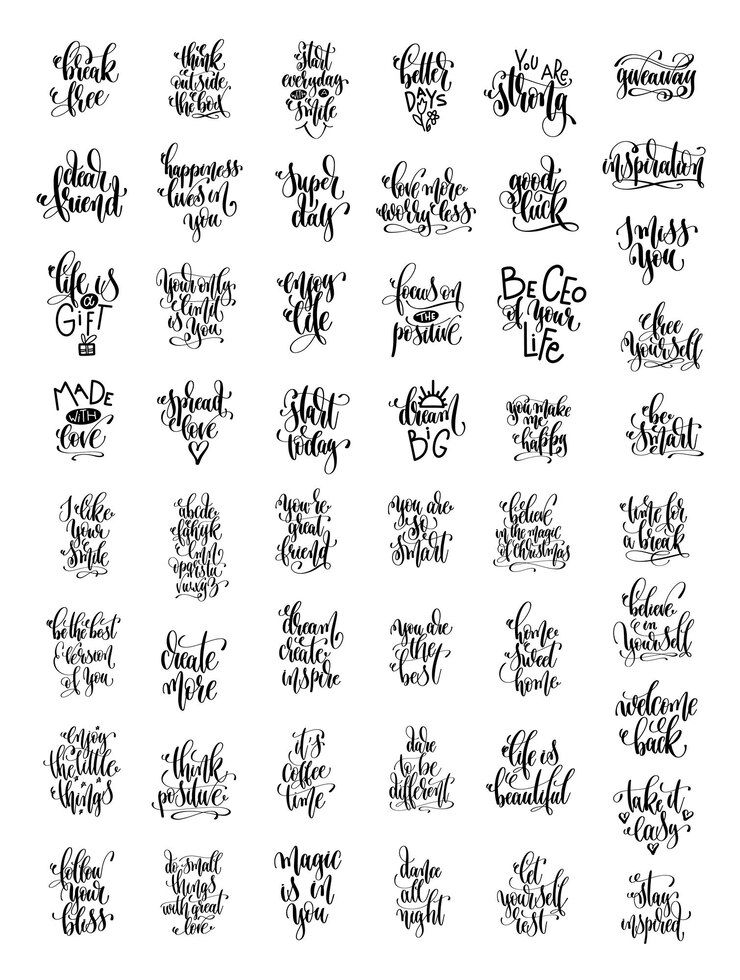 break
free
think
outside
the box
start
everyday
with a
smile
better
DAYS
YOU ARE
strong
giveaway
dear
friend
happiness
lives in
you
super
day
love more
worry less
good
luck
inspiration
I miss
you
life is
a
GIFT
Your only
limit
is you
enjoy
life
focus on
THE
positive
BE CEO
of your
LiFE
free
yourself
MADE
WITH
love
spread
love
start
today
dream
BiG
you make
me
happy
be
smart
I like
your
smile
abcde
fghijk
lmn
opqrstu
vwxyz
you're
great
friend
you are
so
smart
believe
in the magic
of christmas
time for
a break
be the best
version
of you
create
more
dream
create
inspire
you are
the
best
home
sweet
home
believe
in
yourself
enjoy
the little
things
think
positive
it's
coffee
time
dare
to be
different
life is
beautiful
welcome
back
take it
easy
follow
your
bliss
do small
things
with great
love
magic
is in
you
dance
all
night
let
yourself
rest
stay
inspired